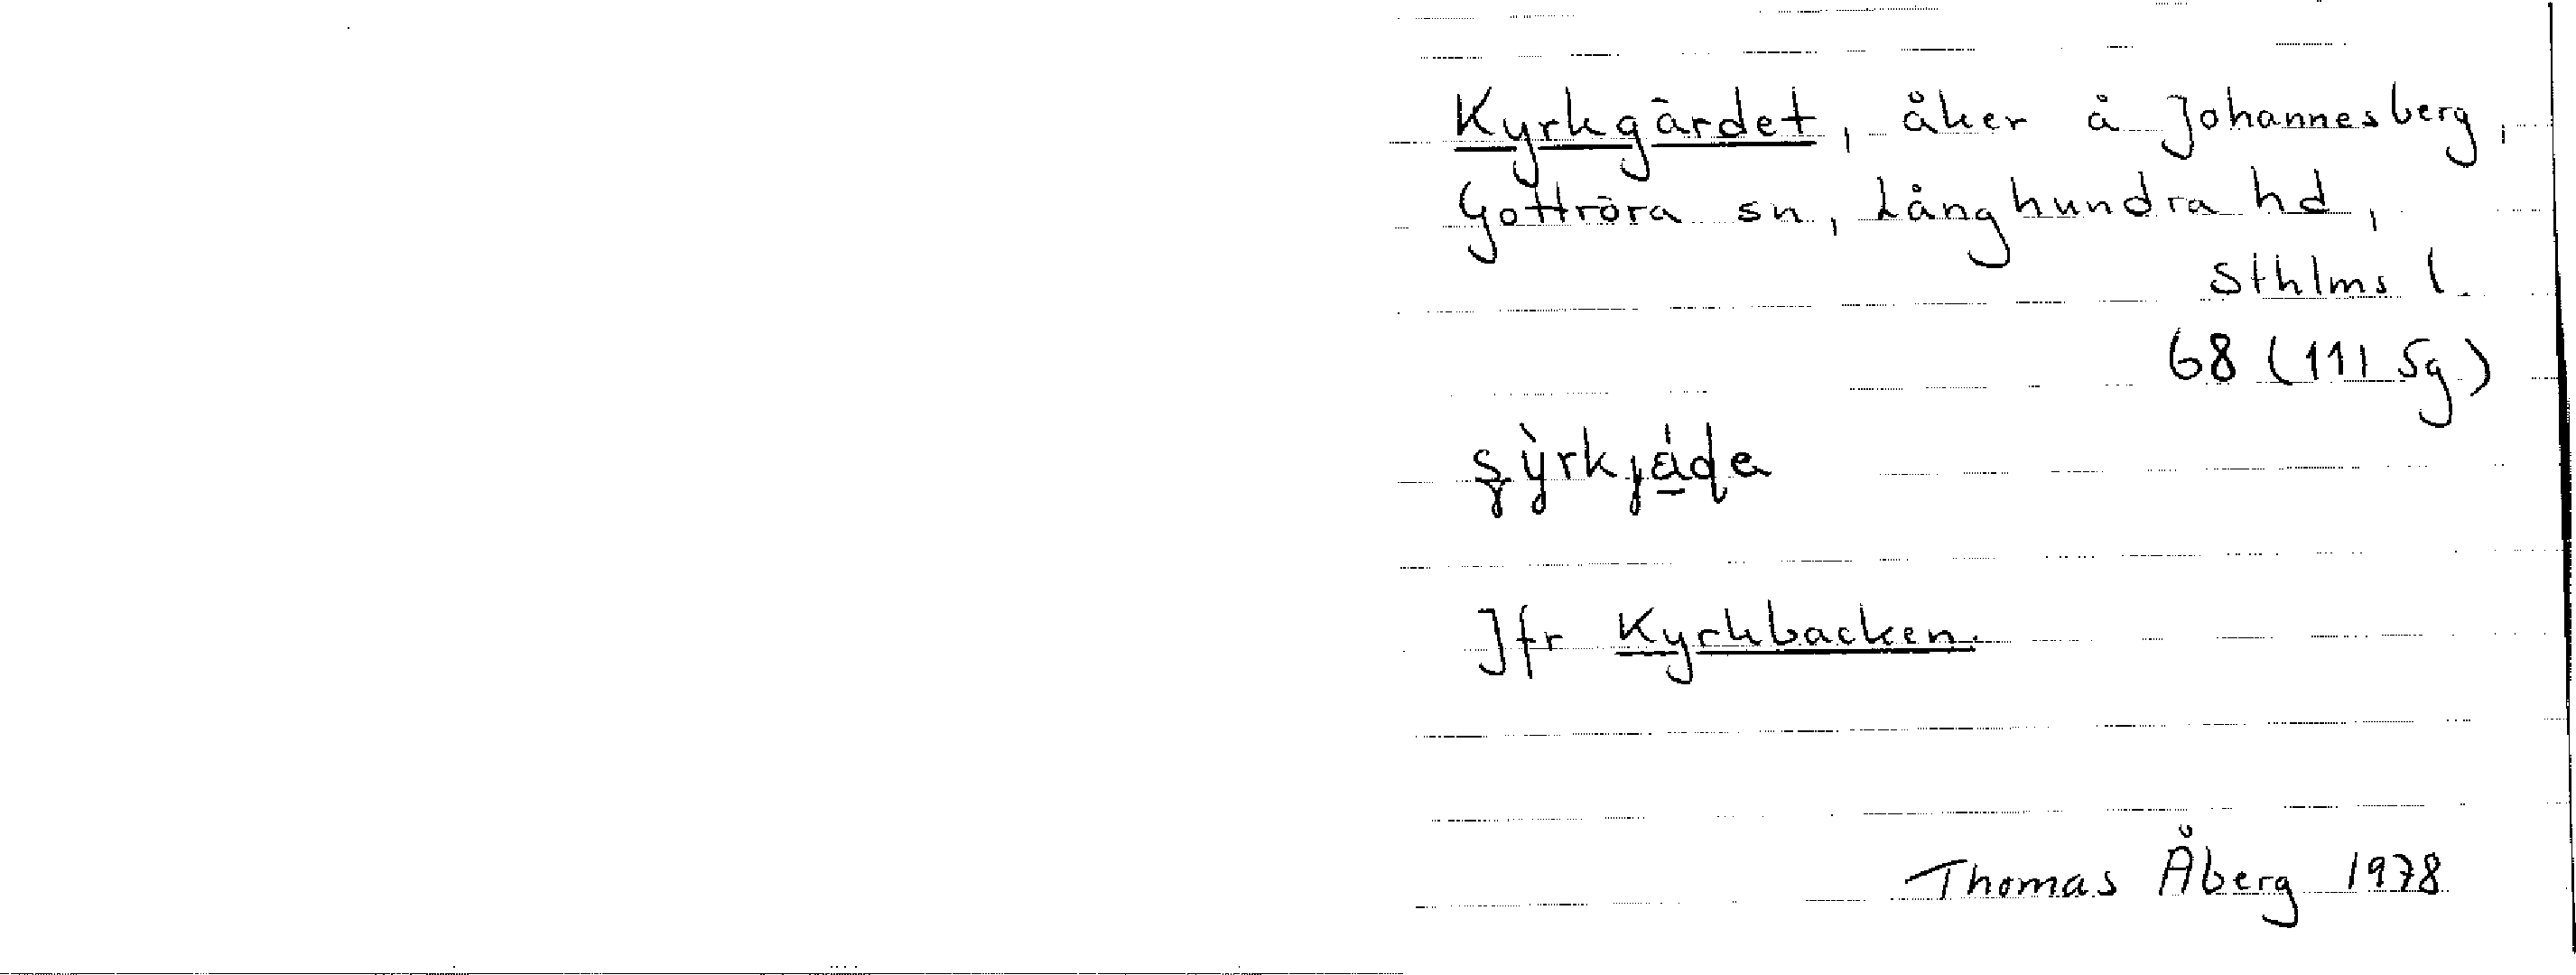 Kyrkgärdet, åker å Johannesberg,
Gottröra sn, Långhundra hd,
Sthlms l.
68 (111 Sg)
Jfr Kyrkbacken.
Thomas Åberg 1978